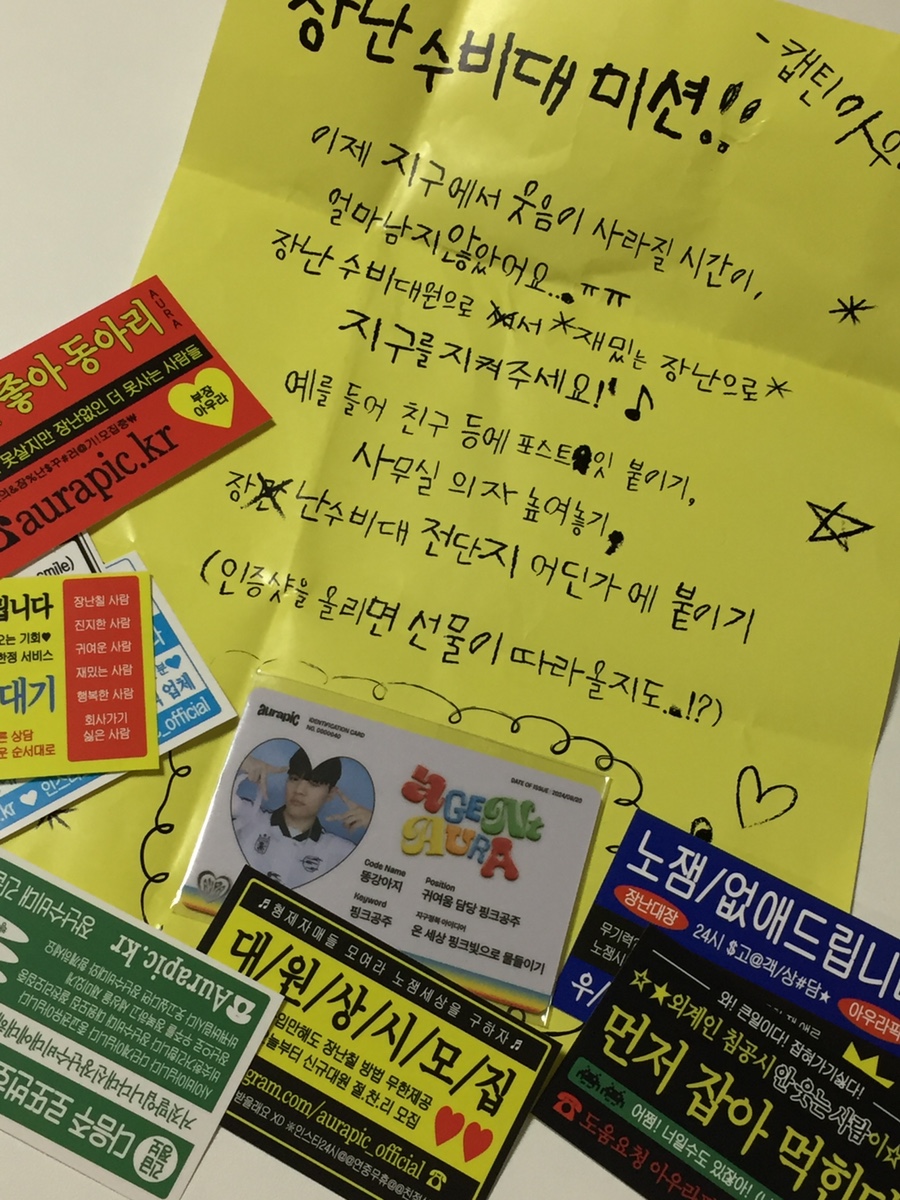 장난 수비대 미션!!
- 캡틴 아우
이제 지구에서 웃음이 사라질 시간이,
얼마남지 않았어요... ㅠㅠ
장난 수비대원으로 서 *재밌는 장난으로*
지구를 지켜주세요! ♪
예를 들어 친구 등에 포스트잇 붙이기,
사무실 의자 높여놓기,
장난수비대 전단지 어딘가에 붙이기
(인증샷을 올리면 선물이 따라올지도..!?)
좋아 동아리
AURA
못살지만 장난없인 더 못사는 사람들
부장
아우라
aurapic.kr
smile)
립니다
오는 기회♥
한정 서비스
대기
른 상담
운 순서대로
장난칠 사람
진지한 사람
귀여운 사람
재밌는 사람
행복한 사람
회사가기
싫은 사람
업체
_official
aurapic
IDENTIFICATION CARD
NO. 0000040
DATE OF ISSUE : 2024/08/20
AGENT
AURA
Code Name
똥강아지
Position
귀여움 담당 핑크공주
Keyword
핑크공주
지구정복 아이디어
온 세상 핑크빛으로 물들이기
♬형제자매들 모여라 노잼세상을 구하자♬
대/원/상/시/모/집
입만해도 장난칠 방법 무한제공
늘부터 신규대원 절.찬.리 모집
gram.com/aurapic_official
노잼/없애드립니
장난대장
24시 $고@객/상#담★
무기력
노잼시
우/
아우라픽
와! 큰일이다! 잡혀가기싫다!
☆★외계인 침공시 안웃는 사람이☆
먼저 잡아 먹히
어쩜! 너일수도 있잖아!
도움요청 아우라
장난수비대
Aurapic.kr
긴급
정보
다음주 로또번호